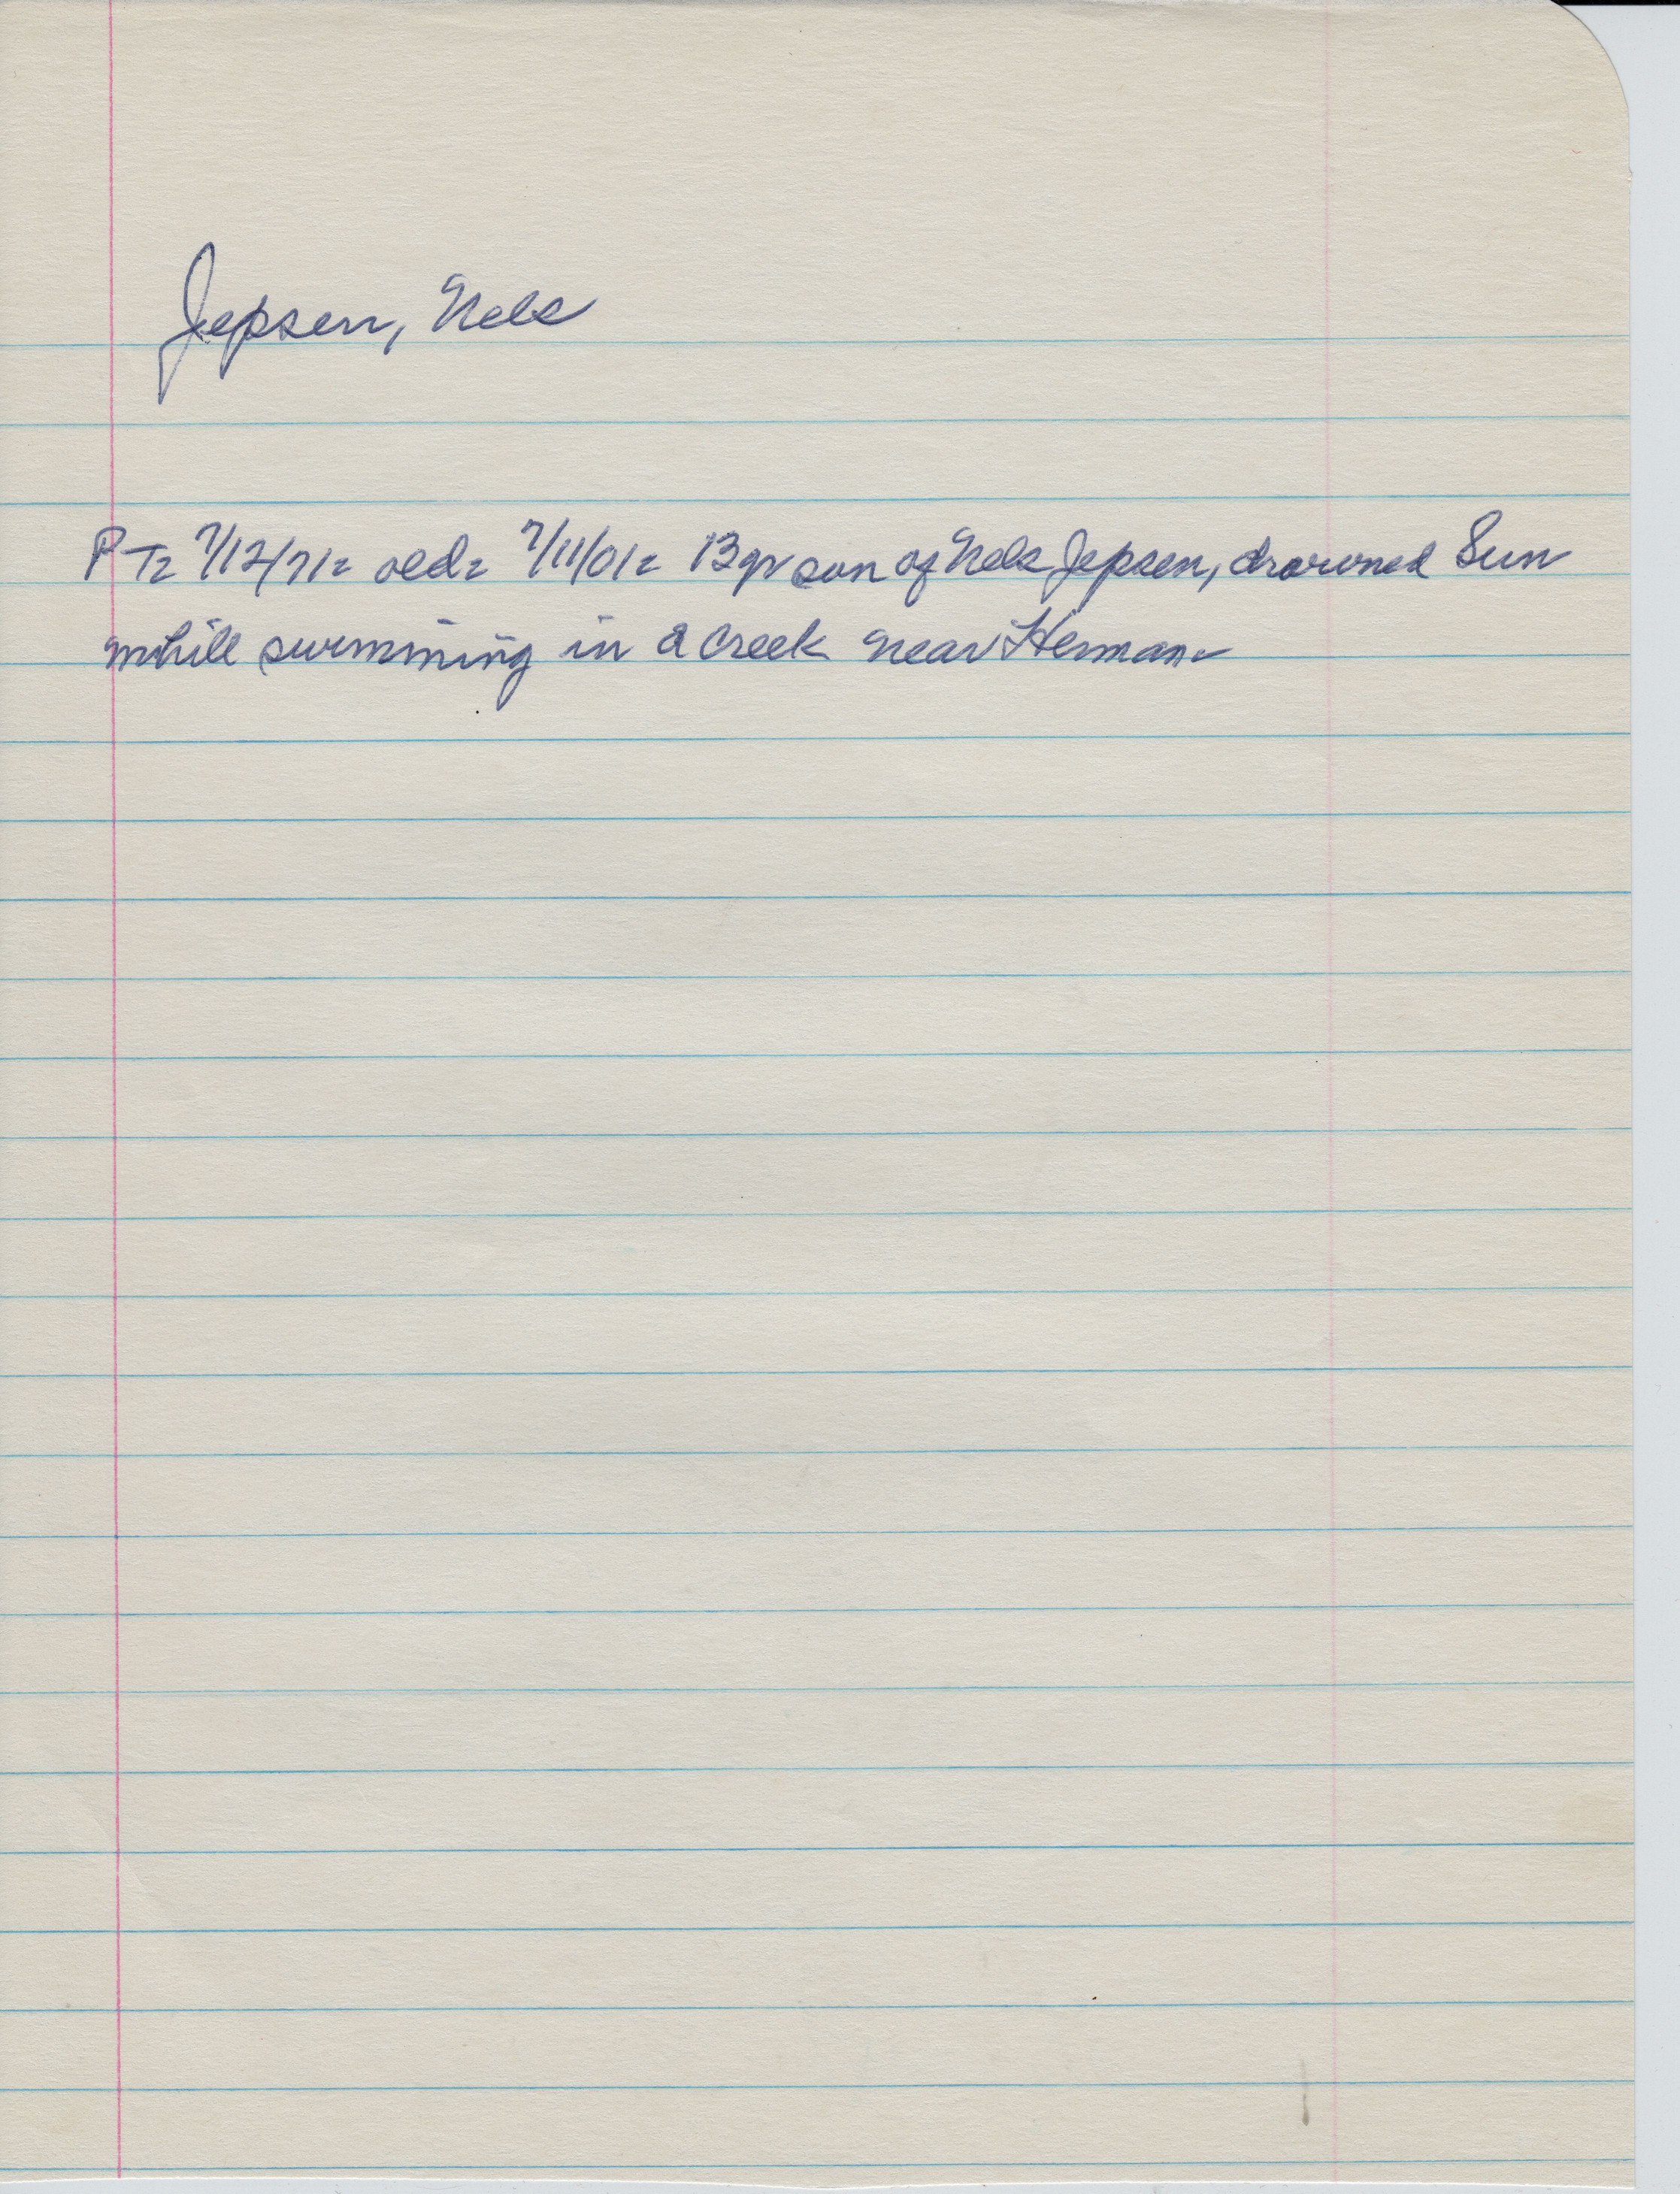 Jepsen, Nels
PT= 7/12/71= old= 7/11/01= 13 yr son of Nels Jepsen, drowned Sun
while swimming in a creek near Herman